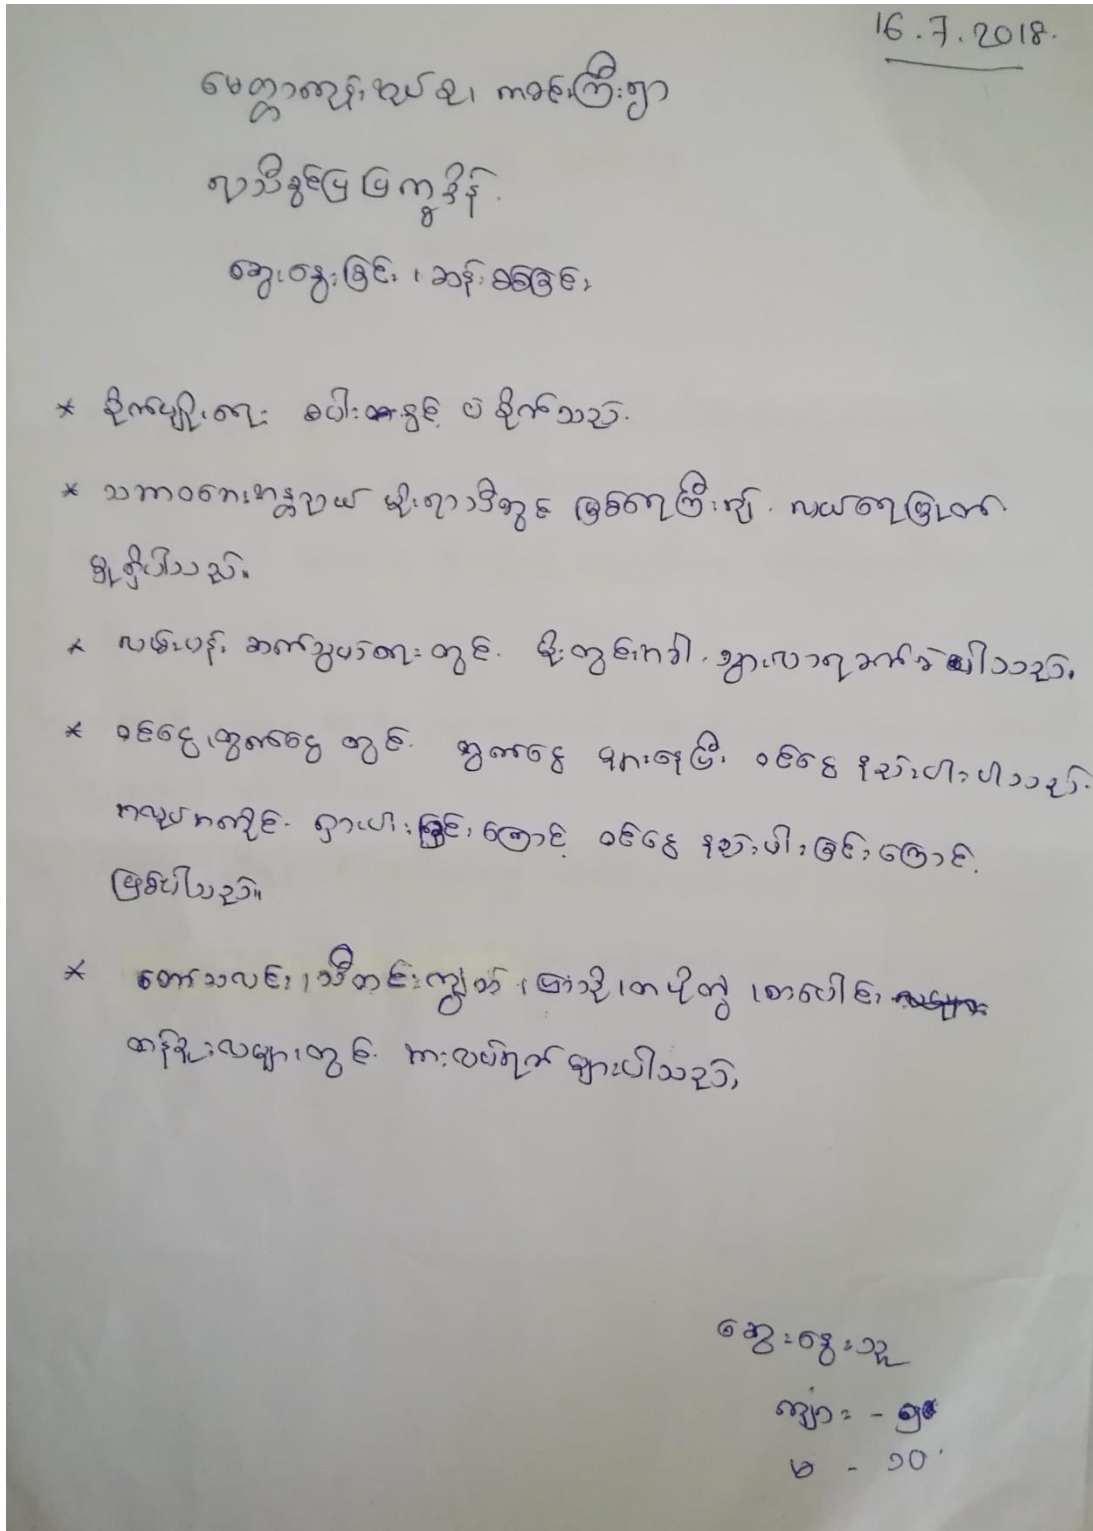 16.7.2018.
မေတ္တာကျွန်းအုပ်စု၊ ကခင်းကြီးရွာ
ရာသီခွင်ပြ ပြက္ခဒိန်
ဆွေးနွေးခြင်း၊ ဆန်းစစ်ခြင်း
* စိုက်ပျိုးရေး စပါးနှင့် ပဲ စိုက်သည်.
* သဘာဝဘေးအန္တရာယ် မိုးရာသီတွင် မြစ်ရေကြီး၍ လယ်ရေမြုပ်
မှုရှိပါသည်။
* လမ်းပန်း ဆက်သွယ်ရေးတွင် မိုးတွင်းအခါ သွားလာရခက်ခဲပါသည်။
* ဝင်ငွေ၊ထွက်ငွေ တွင် ထွက်ငွေ များနေပြီး ဝင်ငွေ နည်းပါးပါသည်.
အလုပ်အကိုင် ရှားပါးခြင်းကြောင့် ဝင်ငွေ နည်းပါးခြင်းကြောင့်
ဖြစ်ပါသည်။
* တော်သလင်း၊ သီတင်းကျွတ်၊ ပြာသို၊ တပို့တွဲ၊ တပေါင်း
တန်ခူးလများတွင် အားလပ်ရက် များပါသည်၊
ဆွေးနွေးသူ
ကျား -
မ - ၁၀